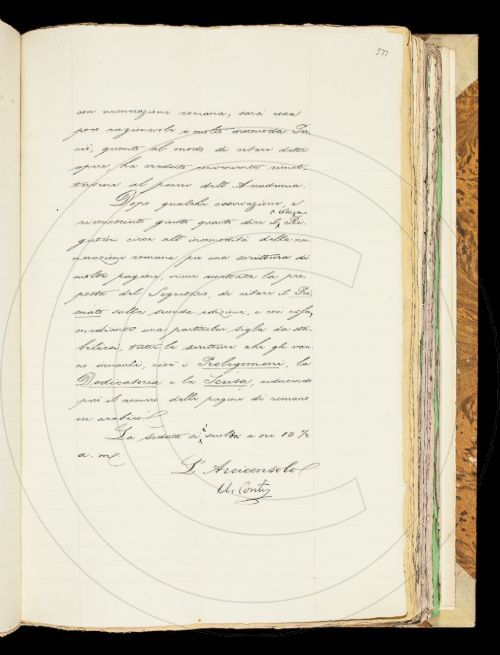 577
con numerazione romana, sarà cosa
poco ragionevole e molto incomoda. Per
ciò, quanto al modo di citare dette
opere ha creduto conveniente rimet-
tersene al parere dell'Accademia.
Dopo qualche osservazione, e
riconosciuto giusto quanto dice il collega Ri-
gutini circa all'incomodità della nu-
merazione romana per una scrittura di
molte pagine, viene accettata la pro-
posta del Segretario, di citare il Pri-
mato sulla seconda edizione, e con essa,
mediante una particolar sigla da sta-
bilirsi, tutte le scritture che gli van-
no innanzi, cioè i Prolegomeni, la
Dedicatoria e la Scusa, riducendo
però il numero delle pagine di romano
in arabico.
La seduta è sciolta a ore 10 ½
a. m.
L'Arciconsolo
A. Conti